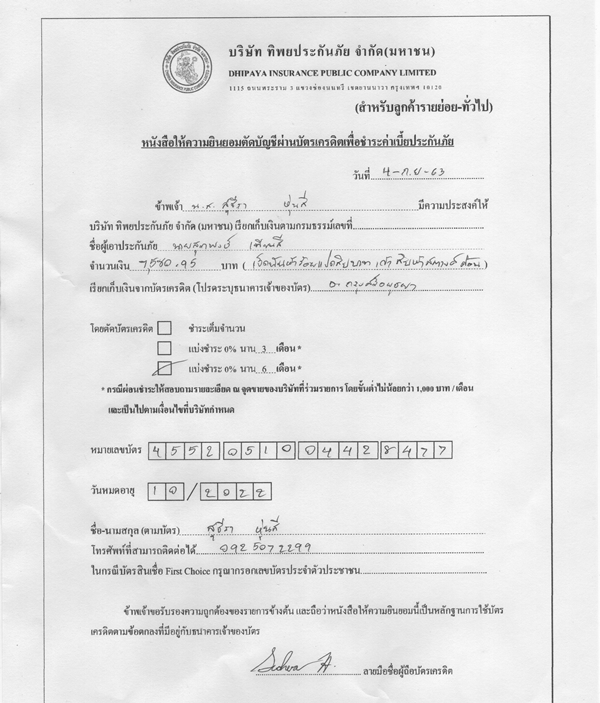 บริษัท ทิพยประกันภัย จำกัด(มหาชน)
DHIPAYA INSURANCE PUBLIC COMPANY LIMITED
1115 ถนนพระราม 3 แขวงช่องนนทรี เขตยานนาวา กรุงเทพฯ 10120
(สำหรับลูกค้ารายย่อย-ทั่วไป)
หนังสือให้ความยินยอมตัดบัญชีผ่านบัตรเครดิตเพื่อชำระค่าเบี้ยประกันภัย
วันที่ 4-ก.ย-63
ข้าพเจ้า น.ส. สุธีรา หุ่นดี มีความประสงค์ให้
บริษัท ทิพยประกันภัย จำกัด (มหาชน) เรียกเก็บเงินตามกรมธรรม์เลขที่
ชื่อผู้เอาประกันภัย นาย
จำนวนเงิน 7,580.95 บาท ( เจ็ดพันห้าร้อยแปดสิบบาทเก้าสิบห้าสตางค์ถ้วน )
เรียกเก็บเงินจากบัตรเครดิต (โปรดระบุธนาคารเจ้าของบัตร) ธ. กรุงศรีอยุธยา
โดยตัดบัตรเครดิต ชำระเต็มจำนวน
แบ่งชำระ 0% นาน 3 เดือน *
แบ่งชำระ 0% นาน 6 เดือน *
* กรณีผ่อนชำระให้สอบถามรายละเอียด ณ จุดขายของบริษัทที่ร่วมรายการ โดยขั้นต่ำไม่น้อยกว่า 1,000 บาท / เดือน
และเป็นไปตามเงื่อนไขที่บริษัทกำหนด
หมายเลขบัตร 4552 0510 0442 8477
วันหมดอายุ 10/2022
ชื่อ-นามสกุล (ตามบัตร) สุธีรา หุ่นดี
โทรศัพท์ที่สามารถติดต่อได้ 0925072299
ในกรณีบัตรสินเชื่อ First Choice กรุณากรอกเลขบัตรประจำตัวประชาชน
ข้าพเจ้าขอรับรองความถูกต้องของรายการข้างต้น และถือว่าหนังสือให้ความยินยอมนี้เป็นหลักฐานการใช้บัตร
เครดิตตามข้อตกลงที่มีอยู่กับธนาคารเจ้าของบัตร
ลายมือชื่อผู้ถือบัตรเครดิต